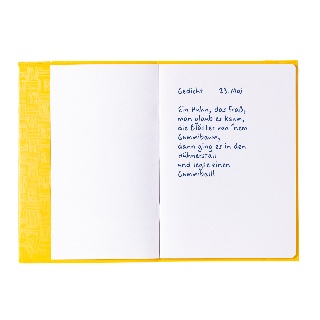 Gedicht 23. Mai
Ein Huhn, das fraß,
man glaubt es kaum,
die Blätter von 'nem
Gummibaum,
dann ging es in den
Hühnerstall
und legte einen
Gummiball!